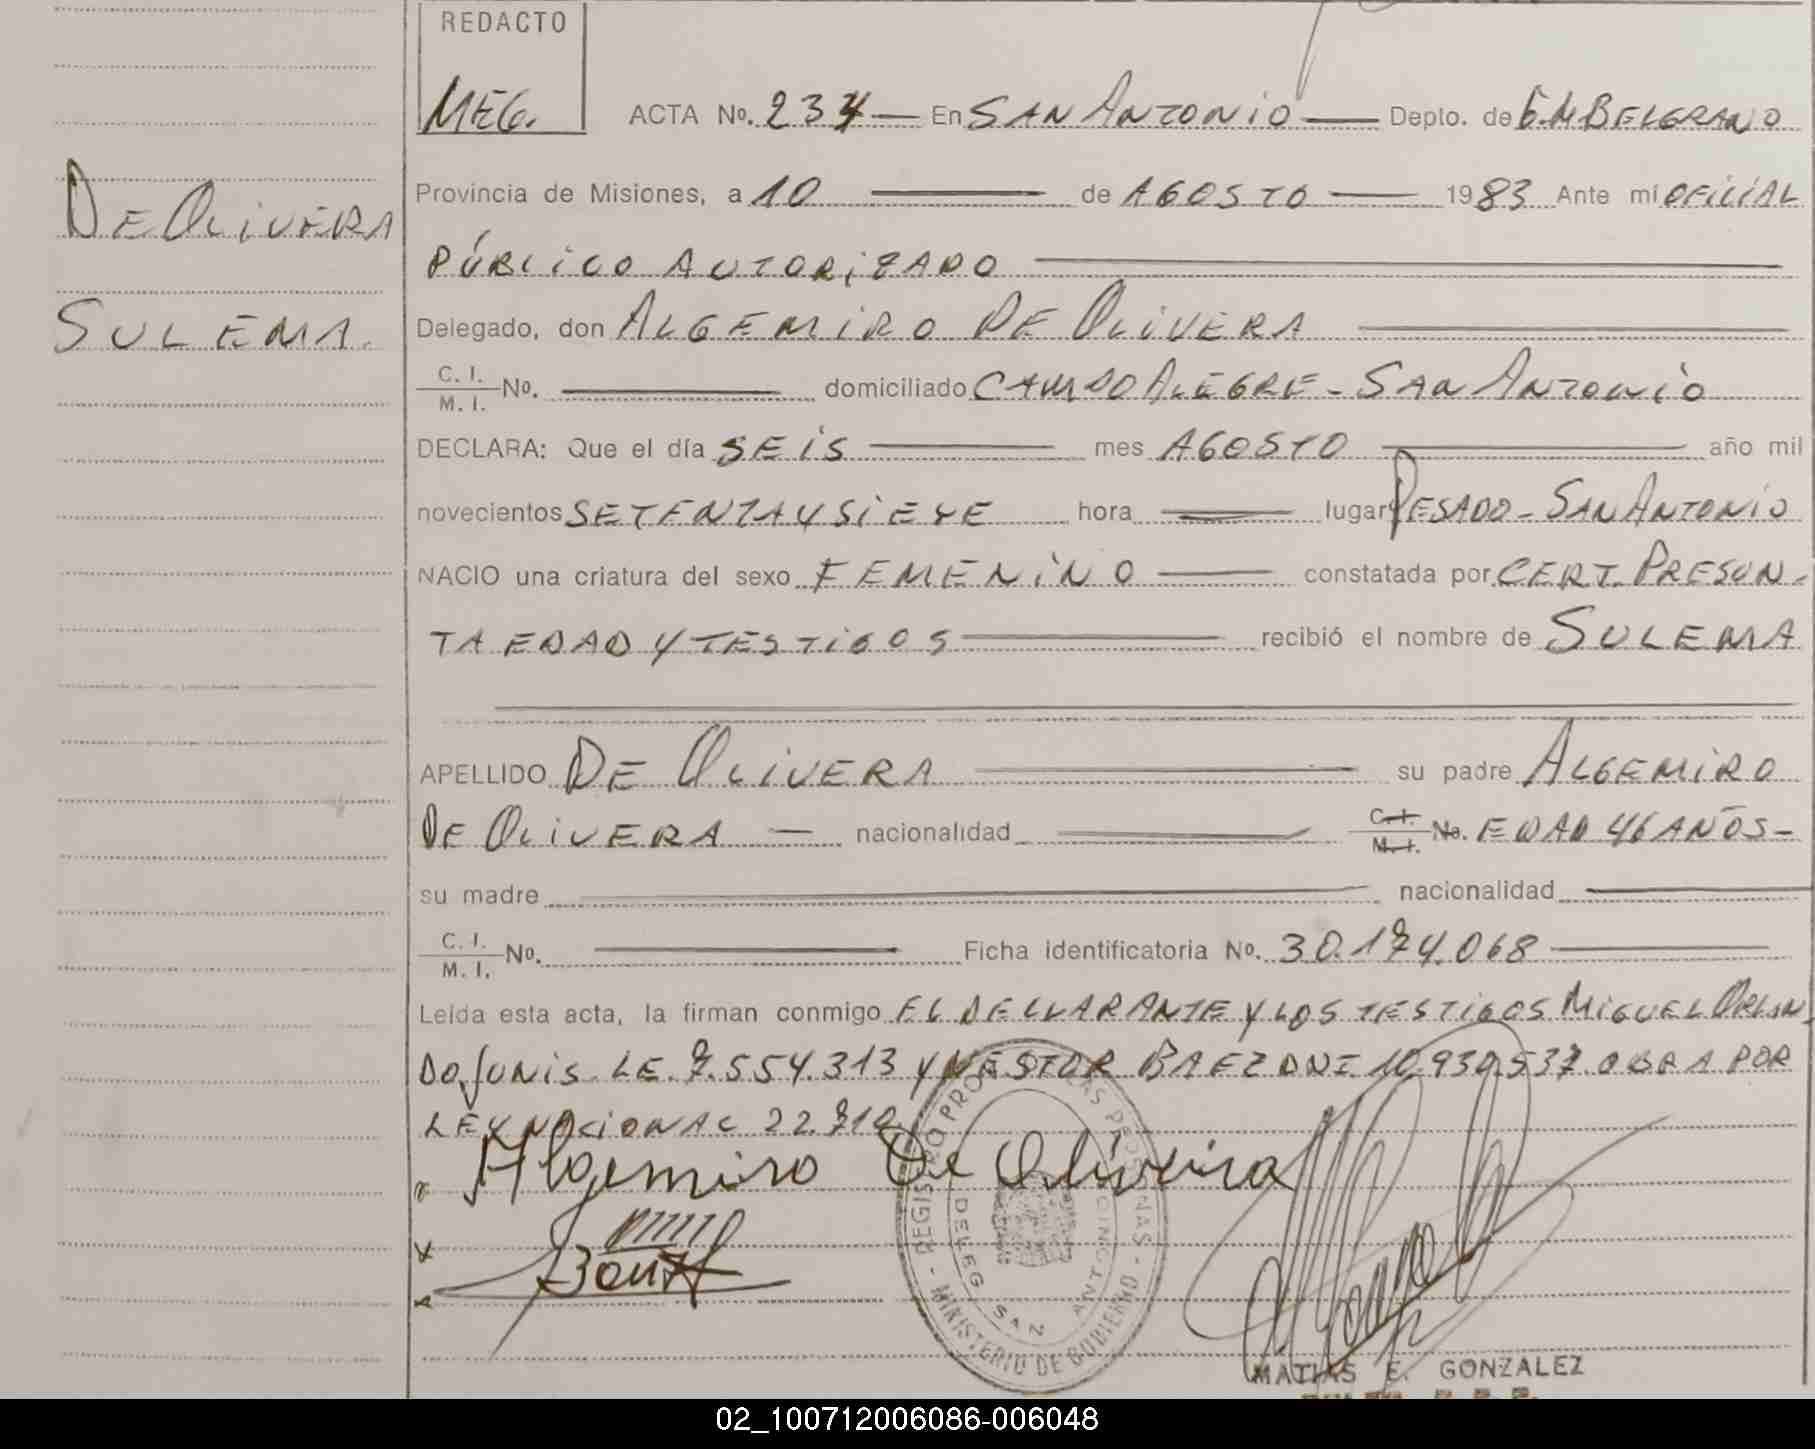 REDACTO
MEG.
ACTA No. 234 — En SAN ANTONIO — Depto. de G.M BELGRANO
Provincia de Misiones, a 10 — de AGOSTO — 1983 Ante mí OFICIAL
PÚBLICO AUTORIZADO
DE OLIVERA
SULEMA.
Delegado, don ALGEMIRO DE OLIVERA
C. I.
M. I. No. — domiciliado CAMPO ALEGRE - SAN ANTONIO
DECLARA: Que el día SEIS — mes AGOSTO — año mil
novecientos SETENTA Y SIETE hora — lugar PESADO - SAN ANTONIO
NACIO una criatura del sexo FEMENINO — constatada por CERT. PRESUN-
TA EDAD Y TESTIGOS — recibió el nombre de SULEMA
APELLIDO DE OLIVERA — su padre ALGEMIRO
DE OLIVERA — nacionalidad — C. I.
M. I. No. EDAD 46 AÑOS -
su madre — nacionalidad —
C. I.
M. I. No. — Ficha identificatoria No. 30.174.068 —
Leída esta acta, la firman conmigo EL DECLARANTE Y LOS TESTIGOS MIGUEL ORLAN-
DO JUNIS LE. 7.554.313 Y NESTOR BAEZ DNI 10.930.537. OBRA POR
LEY NACIONAL 22.
Algemiro De Oliveira
REGISTRO PROV. PERSONAS - MINISTERIO DE GOBIERNO -
DELEG. SAN ANTONIO
MATIAS E. GONZALEZ
02_100712006086-006048